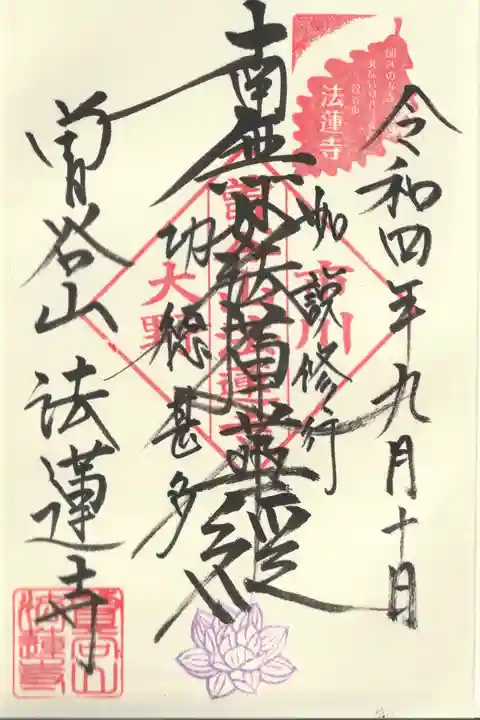 令和四年九月十日
如説修行
南無妙法蓮華經
功徳甚多
曽谷山 法蓮寺
法蓮寺
市川
大野